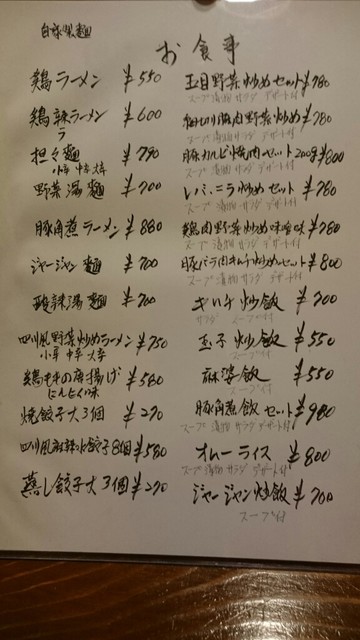 自家製麺
お食事
鶏ラーメン ¥550
鶏辣ラーメン ¥600
ラ
担々麺 ¥790
小辛 中辛 大辛
野菜湯麺 ¥700
豚角煮ラーメン ¥880
ジャージャン麺 ¥700
酸辣湯麺 ¥700
四川風野菜炒めラーメン ¥750
小辛 中辛 大辛
鶏モモの唐揚げ ¥580
にんにく味
焼餃子大3個 ¥270
四川風麻辣水餃子8個 ¥580
蒸し餃子大3個 ¥270
五目野菜炒めセット ¥780
スープ 漬物 サラダ デザート付
細切り豚肉野菜炒め ¥780
スープ 漬物 サラダ デザート付
豚カルビ焼肉セット200g ¥800
スープ 漬物 サラダ デザート付
レバニラ炒めセット ¥780
スープ 漬物 サラダ デザート付
鶏肉野菜炒め味噌味 ¥780
スープ 漬物 サラダ デザート付
豚バラ肉キムチ炒めセット ¥800
スープ 漬物 サラダ デザート付
キムチ炒飯 ¥700
サラダ スープ付
玉子炒飯 ¥550
スープ付
麻婆飯 ¥550
スープ付
豚角煮飯セット ¥980
スープ 漬物 サラダ デザート付
オムーライス ¥800
スープ 漬物 サラダ デザート付
ジャージャン炒飯 ¥700
スープ付